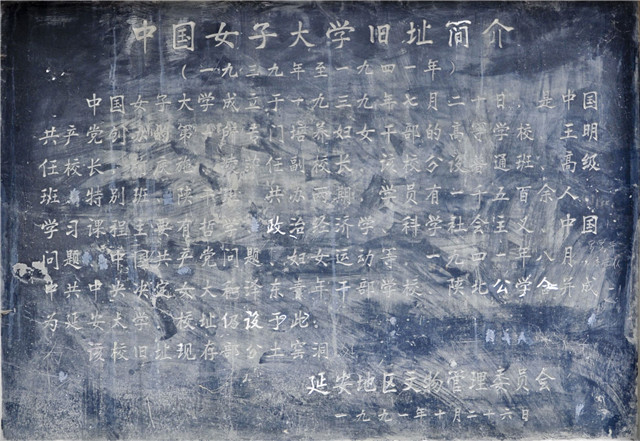 中国女子大学旧址简介
（一九三九年至一九四一年）
中国女子大学成立于一九三九年七月二十日，是中国
共产党创办的第一所专门培养妇女干部的高等学校。王明
任校长，柯庆施 副校长，该校分设普通班、高级
班、特别班、陕干班，共办两期，学员有一千五百余人。
学习课程主要有哲学、政治经济学、科学社会主义、中国
问题、中国共产党问题、妇女运动等。一九四一年八月，
中共中央决定女大和泽东青年干部学校、陕北公学合并成
为延安大学，校址仍设于此。
该校旧址现存部分土窑洞。
延安地区文物管理委员会
一九九一年十月二十六日